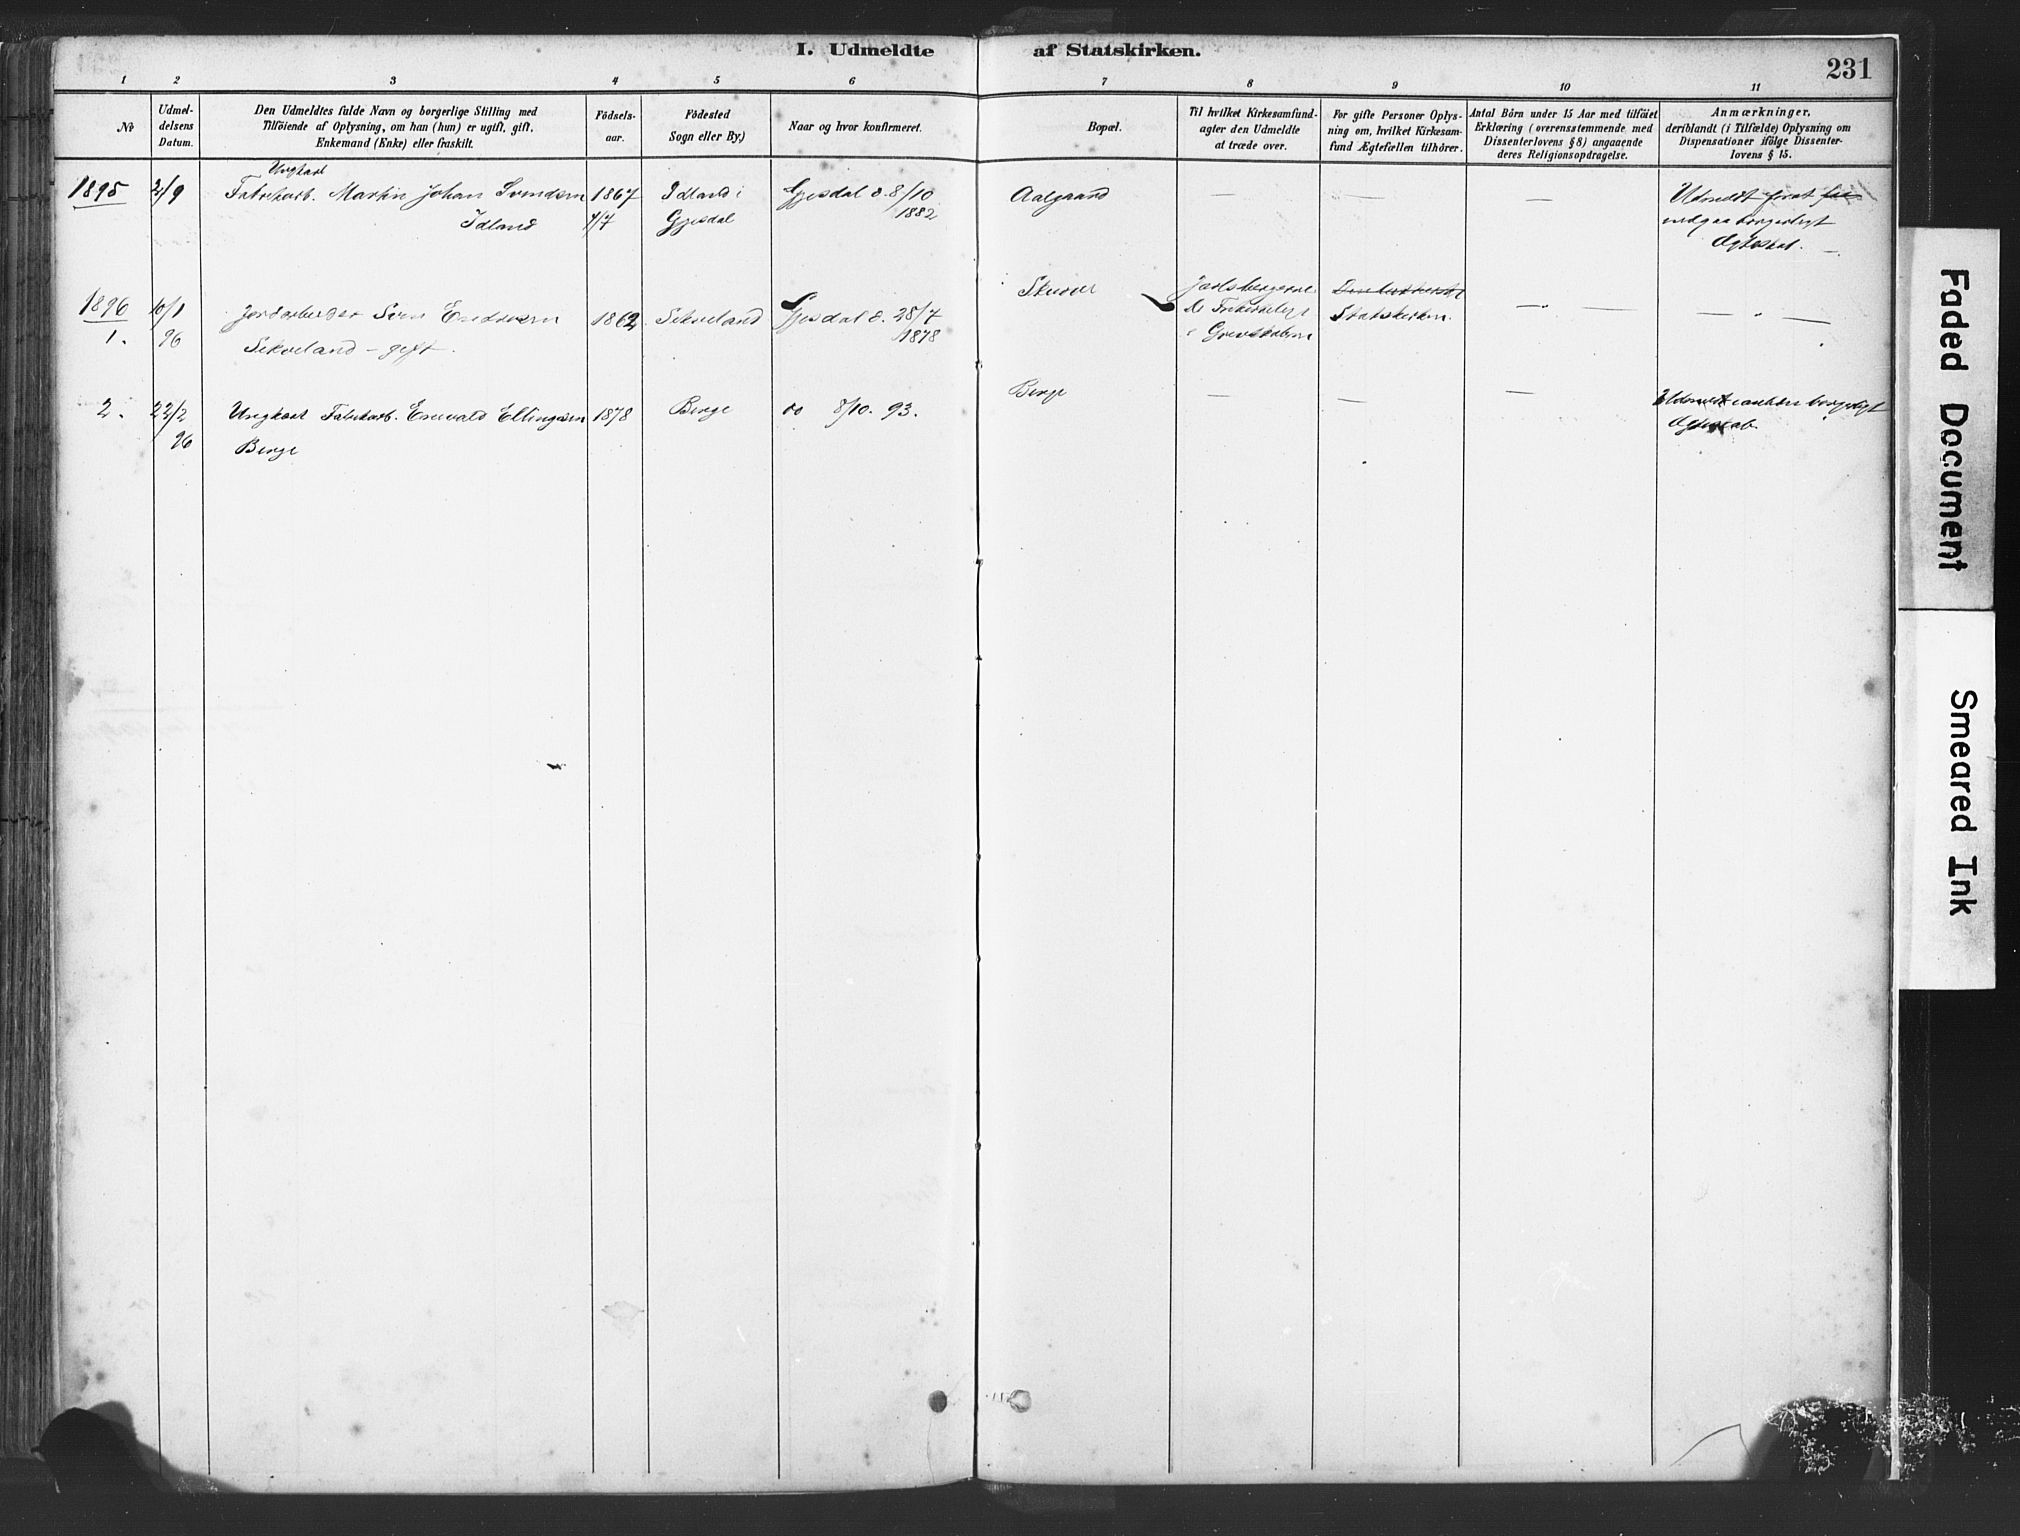 I. Udmeldte af Statskirken.
231
1 2 3 4 5 6 7 8 9 10 11
No
Udmel-
delsens
Datum.
Den Udmeldtes fulde Navn og borgerlige Stilling med
Tilföiende af Oplysning, om han (hun) er ugift, gift,
Enkemand (Enke) eller fraskilt.
Födsels-
aar.
Födested
Sogn eller By.)
Naar og hvor konfirmeret.
Bopæl.
Til hvilket Kirkesamfund-
agter den Udmeldte
at træde over.
For gifte Personer Oplys-
ning om, hvilket Kirkesam-
fund Ægtefællen tilhörer.
Antal Börn under 15 Aar med tilföiet
Erklæring (overensstemmende med
Dissenterlovens § 8) angaaende
deres Religionsopdragelse.
Anmærkninger,
deriblandt (i Tilfælde) Oplysning om
Dispensationer ifölge Dissenter-
lovens § 15.
Ungkarl
1895 2/9 Fabrikarb. Martin Johan Svendsen 1867 Idland i Gjesdal d. 8/10 Aalgaard — — — Udmeldt forat
Idland 7/7 Gjesdal 1882 indgaa borgerligt
Ægteskab. —
1896 10/1 Jordarbeider Sven 1862 Sekveland Gjesdal d. 28/7 Jarlsbergerne — " — — " —
1. 96 Sekveland – gift. 1878 Frikirkeligt Statskirken.
i Grevskabern
2. 22/2 Ungkarl Fabrikarb. Enevald Ellingsen 1878 Berge do 8/10. 93. Berge — — — Udmeldt borgerligt
96 Berge Ægteskab.
Faded Document
Smeared Ink